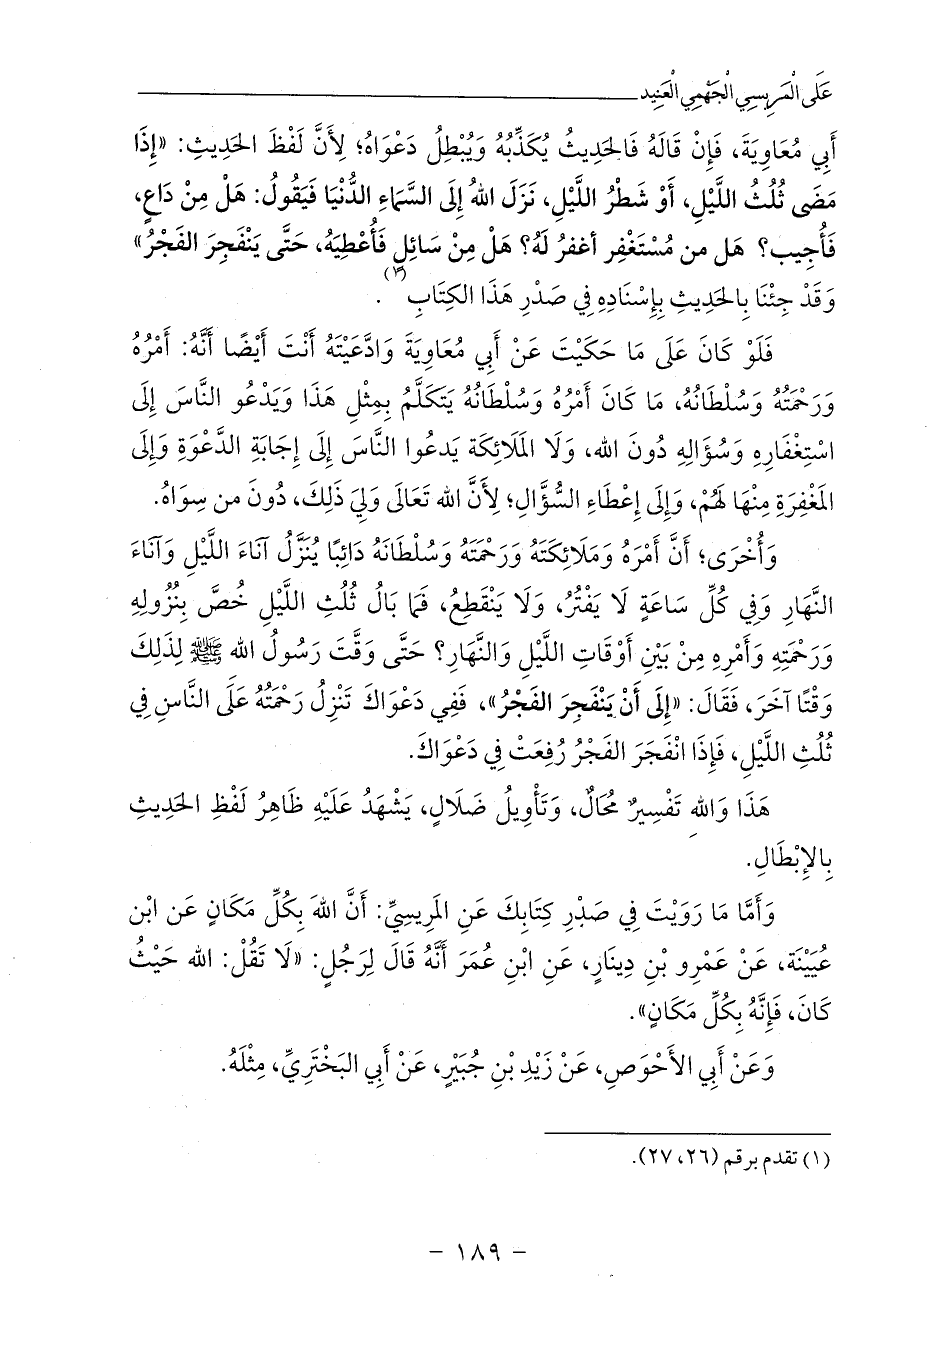 عَلَى الْمَرِيسِي الْجَهْمِي الْعَنِيد
أَبِي مُعَاوِيَةَ، فَإِنْ قَالَهُ فَالحَدِيثُ يُكَذِّبُهُ وَيُبْطِلُ دَعْوَاهُ؛ لِأَنَّ لَفْظَ الحَدِيثِ: «إِذَا
مَضَى ثُلُثُ اللَّيْلِ، أَوْ شَطْرُ اللَّيْلِ، نَزَلَ اللهُ إِلَى السَّمَاءِ الدُّنْيَا فَيَقُولُ: هَلْ مِنْ دَاعٍ،
فَأُجِيب؟ هَل من مُسْتَغْفِر أغفرُ لَهُ؟ هَلْ مِنْ سَائِلٍ فَأُعْطِيَهُ، حَتَّى يَنْفَجِرَ الفَجْرُ»
وَقَدْ جِئْنَا بِالحَدِيثِ بِإِسْنَادِهِ فِي صَدْرِ هَذَا الكِتَابِ (١).
فَلَوْ كَانَ عَلَى مَا حَكَيْتَ عَنْ أَبِي مُعَاوِيَةَ وَادَّعَيْتَهُ أَنْتَ أَيْضًا أَنَّهُ: أَمْرُهُ
وَرَحْمَتُهُ وَسُلْطَانُهُ، مَا كَانَ أَمْرُهُ وَسُلْطَانُهُ يَتَكَلَّمُ بِمِثْلِ هَذَا وَيَدْعُو النَّاسَ إِلَى
اسْتِغْفَارِهِ وَسُؤَالِهِ دُونَ الله، وَلَا المَلَائِكَة يَدعُوا النَّاسَ إِلَى إِجَابَةِ الدَّعْوَةِ وَإِلَى
المَغْفِرَةِ مِنْهَا لَهُمْ، وَإِلَى إِعْطَاءِ السُّؤَّالِ؛ لِأَنَّ الله تَعَالَى وَلِيَ ذَلِكَ، دُونَ من سِوَاهُ.
وَأُخْرَى؛ أَنَّ أَمْرَهُ وَمَلَائِكَتَهُ وَرَحْمَتَهُ وَسُلْطَانَهُ دَائِبًا يُنَزَّلُ آنَاءَ اللَّيْلِ وَآنَاءَ
النَّهَارِ وَفِي كُلِّ سَاعَةٍ لَا يَفْتُرُ، وَلَا يَنْقَطِعُ، فَمَا بَالُ ثُلُثِ اللَّيْلِ خُصَّ بِنُزُولِهِ
وَرَحْمَتِهِ وَأَمْرِهِ مِنْ بَيْنِ أَوْقَاتِ اللَّيْلِ وَالنَّهَارِ؟ حَتَّى وَقَّتَ رَسُولُ الله ﷺ لِذَلِكَ
وَقْتًا آخَرَ، فَقَالَ: «إِلَى أَنْ يَنْفَجِرَ الفَجْرُ»، فَفِي دَعْوَاكَ تَنْزِلُ رَحْمَتُهُ عَلَى النَّاسِ فِي
ثُلُثِ اللَّيْلِ، فَإِذَا انْفَجَرَ الفَجْرُ رُفِعَتْ فِي دَعْوَاكَ.
هَذَا وَالله تَفْسِيرٌ مُحَالٌ، وَتَأْوِيلُ ضَلَالٍ، يَشْهَدُ عَلَيْهِ ظَاهِرُ لَفْظِ الحَدِيثِ
بِالإِبْطَالِ.
وَأَمَّا مَا رَوَيْتَ فِي صَدْرِ كِتَابِكَ عَنِ المَرِيسِيِّ: أَنَّ اللهَ بِكُلِّ مَكَانٍ عَن ابْن
عُيَيْنَة، عَنْ عَمْرِو بْنِ دِينَارٍ، عَنِ ابْنِ عُمَرَ أَنَّهُ قَالَ لِرَجُلٍ: «لَا تَقُلْ: الله حَيْثُ
كَانَ، فَإِنَّهُ بِكُلِّ مَكَانٍ».
وَعَنْ أَبِي الأَحْوَصِ، عَنْ زَيْدِ بْنِ جُبَيْرٍ، عَنْ أَبِي البَخْتَرِيِّ، مِثْلَهُ.
(١) تقدم برقم (٢٦، ٢٧).
- ١٨٩ -